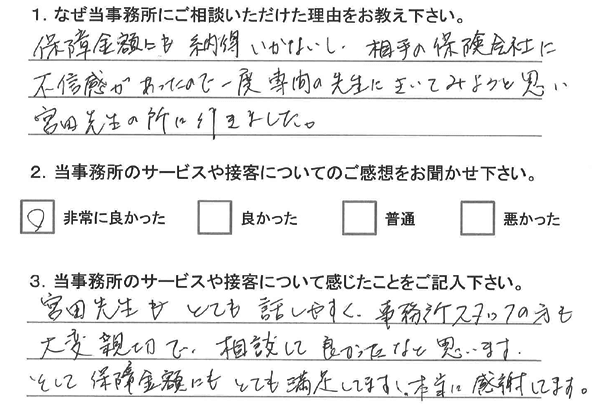 1. なぜ当事務所にご相談いただけた理由をお教え下さい。
保障金額にも納得いかないし、相手の保険会社に
不信感があったので一度専門の先生にきいてみようと思い
宮田先生の所に行きました。
2. 当事務所のサービスや接客についてのご感想をお聞かせ下さい。
非常に良かった 良かった 普通 悪かった
3. 当事務所のサービスや接客について感じたことをご記入下さい。
宮田先生もとても話しやすく、事務所スタッフの方も
大変親切で、相談して良かったなと思います。
そして保障金額にもとても満足してますし、本当に感謝してます。